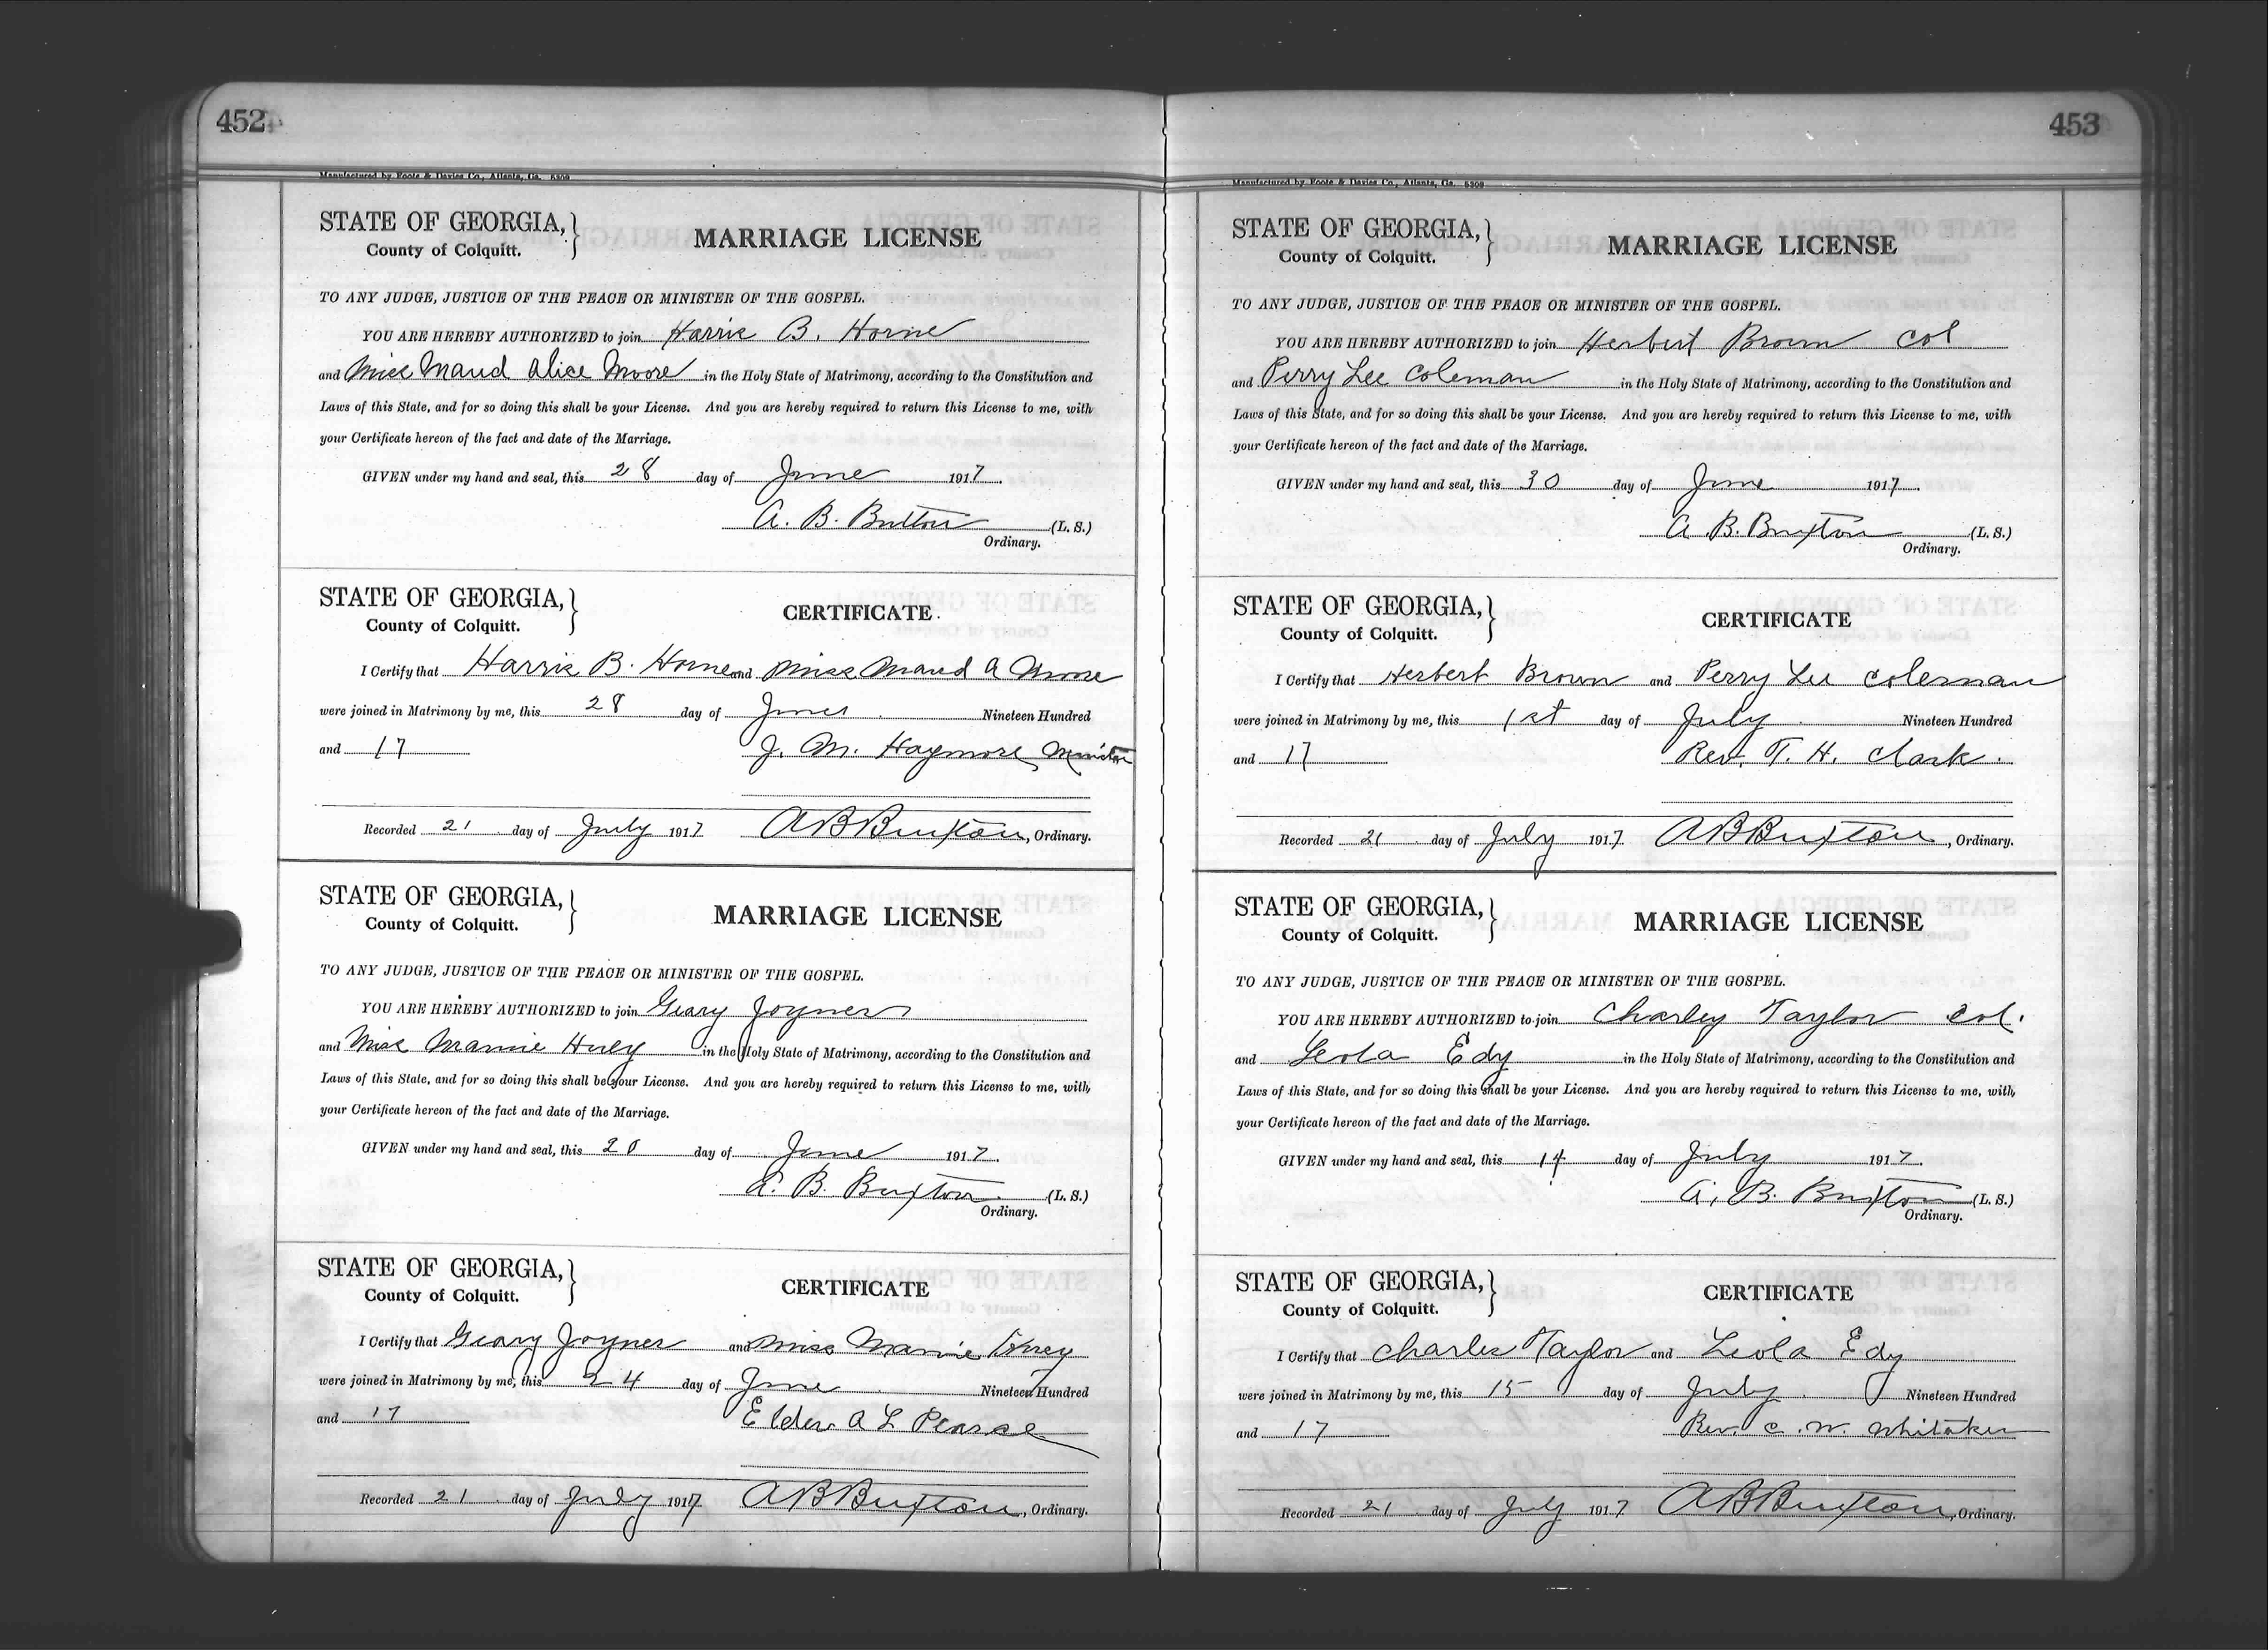 452
Manufactured by Foote & Davies Co., Atlanta, Ga. 5309
STATE OF GEORGIA,
County of Colquitt.
MARRIAGE LICENSE
TO ANY JUDGE, JUSTICE OF THE PEACE OR MINISTER OF THE GOSPEL.
YOU ARE HEREBY AUTHORIZED to join Harris B. Horne
and Miss Maud Alice Moore in the Holy State of Matrimony, according to the Constitution and
Laws of this State, and for so doing this shall be your License. And you are hereby required to return this License to me, with
your Certificate hereon of the fact and date of the Marriage.
GIVEN under my hand and seal, this 28 day of June 1917.
A. B. Buxton (L. S.)
Ordinary.
STATE OF GEORGIA,
County of Colquitt.
CERTIFICATE
I Certify that Harris B. Horne and Miss Maud A Moore
were joined in Matrimony by me, this 28 day of June Nineteen Hundred
and 17
J. M. Haymore, Minister
Recorded 21 day of July 1917 A B Buxton, Ordinary.
STATE OF GEORGIA,
County of Colquitt.
MARRIAGE LICENSE
TO ANY JUDGE, JUSTICE OF THE PEACE OR MINISTER OF THE GOSPEL.
YOU ARE HEREBY AUTHORIZED to join Geary Joyner
and Miss Mamie Huey in the Holy State of Matrimony, according to the Constitution and
Laws of this State, and for so doing this shall be your License. And you are hereby required to return this License to me, with,
your Certificate hereon of the fact and date of the Marriage.
GIVEN under my hand and seal, this day of June 1917.
A. B. Buxton (L. S.)
Ordinary.
STATE OF GEORGIA,
County of Colquitt.
CERTIFICATE
I Certify that Geary Joyner and Miss Mamie Huey
were joined in Matrimony by me, this 24 day of June Nineteen Hundred
and 17
Elder A L Pearce
Recorded 21 day of July 1917 A B Buxton, Ordinary.
453
Manufactured by Foote & Davies Co., Atlanta, Ga. 5309
STATE OF GEORGIA,
County of Colquitt.
MARRIAGE LICENSE
TO ANY JUDGE, JUSTICE OF THE PEACE OR MINISTER OF THE GOSPEL.
YOU ARE HEREBY AUTHORIZED to join Herbert Brown Col
and Perry Lee Coleman in the Holy State of Matrimony, according to the Constitution and
Laws of this State, and for so doing this shall be your License. And you are hereby required to return this License to me, with
your Certificate hereon of the fact and date of the Marriage.
GIVEN under my hand and seal, this 30 day of June 1917.
A B. Buxton (L. S.)
Ordinary.
STATE OF GEORGIA,
County of Colquitt.
CERTIFICATE
I Certify that Herbert Brown and Perry Lee Coleman
were joined in Matrimony by me, this 1st day of July Nineteen Hundred
and 17
Rev. T. H. Clark.
Recorded 21 day of July 1917 A B Buxton, Ordinary.
STATE OF GEORGIA,
County of Colquitt.
MARRIAGE LICENSE
TO ANY JUDGE, JUSTICE OF THE PEACE OR MINISTER OF THE GOSPEL.
YOU ARE HEREBY AUTHORIZED to join Charley Taylor Col.
and Leola Edy in the Holy State of Matrimony, according to the Constitution and
Laws of this State, and for so doing this shall be your License. And you are hereby required to return this License to me, with,
your Certificate hereon of the fact and date of the Marriage.
GIVEN under my hand and seal, this 14 day of July 1917.
A. B. Buxton (L. S.)
Ordinary.
STATE OF GEORGIA,
County of Colquitt.
CERTIFICATE
I Certify that Charles Taylor and Leola Edy
were joined in Matrimony by me, this 15 day of July Nineteen Hundred
and 17
Rev. C. W. Whitaker
Recorded 21 day of July 1917 A B Buxton, Ordinary.